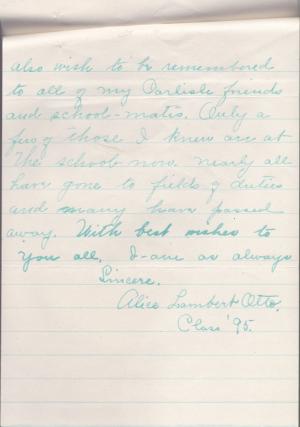 also wish to be remembered
to all of my Carlisle friends
and school-mates. Only a
few of those I knew are at
the school now. nearly all
have gone to fields of duties
and many have passed
away. With best wishes to
you all, I-am as always
Sincere.
Alice Lambert Otto.
Class '95.